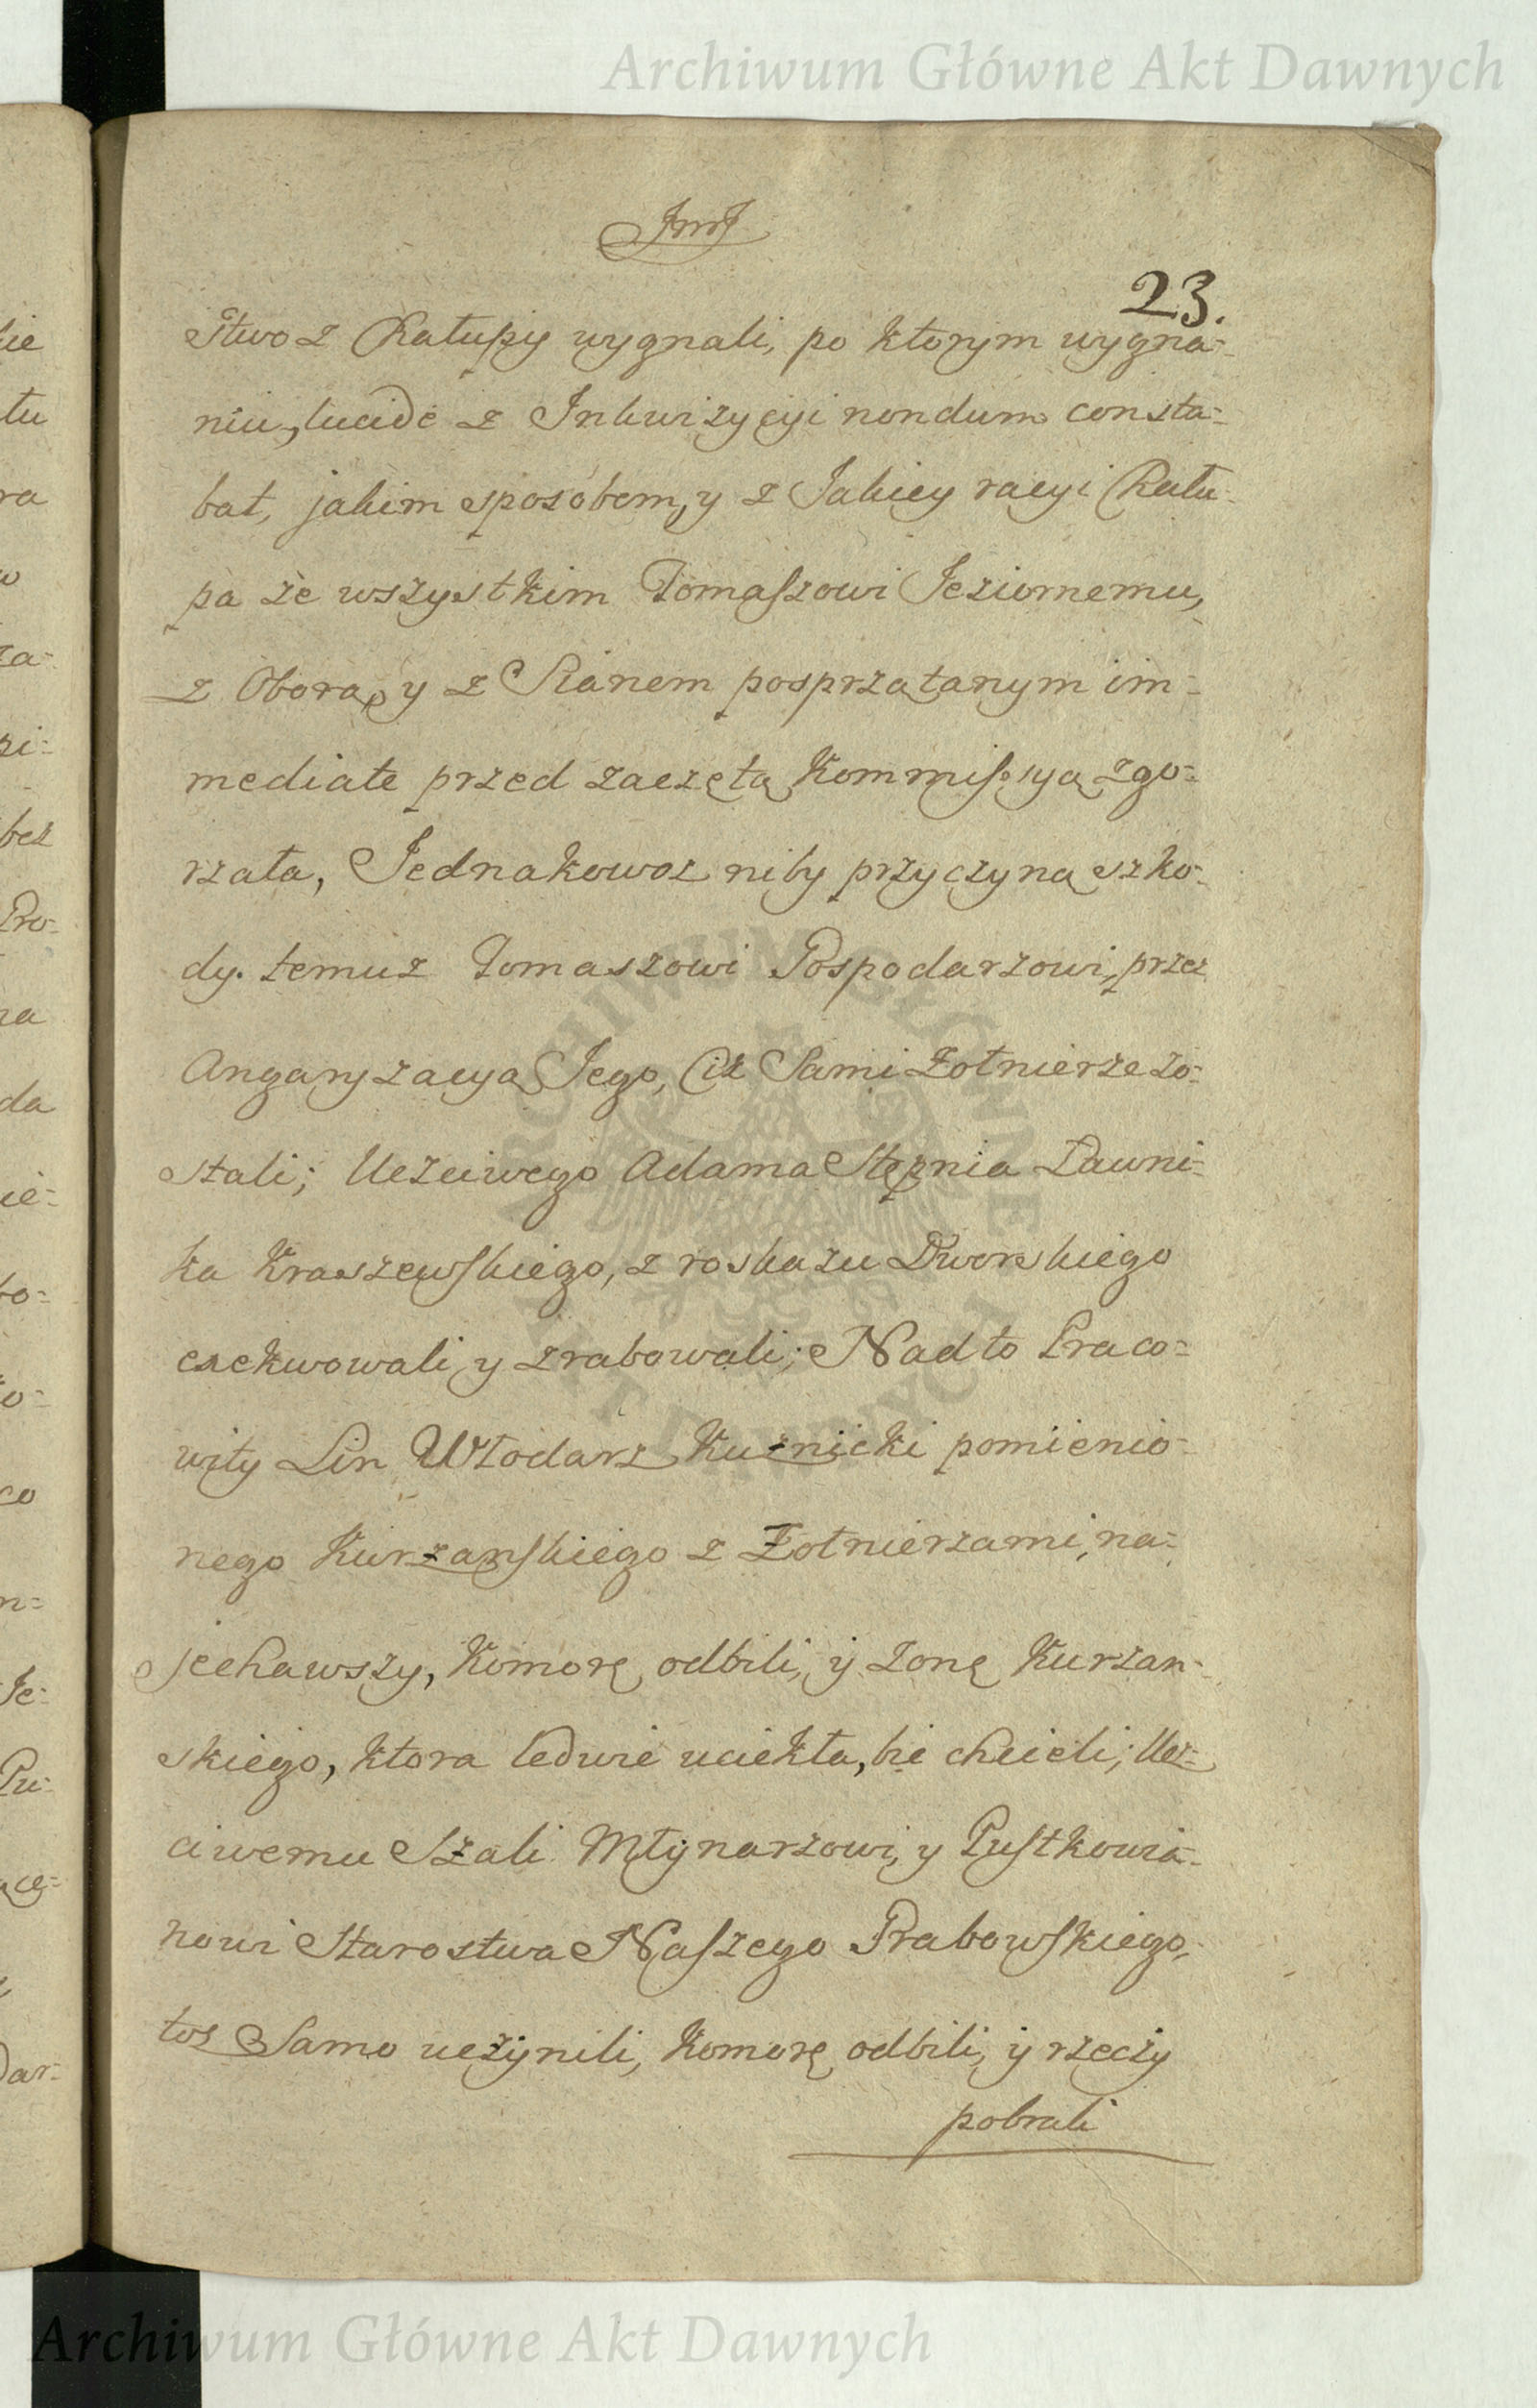 Archiwum Główne Akt Dawnych
23.
stwo z Chałupy wygnali, po ktorym wygna=
niu, lucide z Inkwizycyi nondum consta=
bat, jakim sposobem, y z Jakiey racyi Chału=
pa ze wszystkim Tomaszowi Jeziornemu,
z Oborą, y z Sianem posprzątanym im=
mediate przed zaczętą Kommissyą zgo=
rzała, Jednakowoz niby przyczyną szko=
dy temuz Tomaszowi Gospodarzowi, przez
Angaryzacyą Jego, Ciz Sami Zołnierze zo=
stali; Uczciwego Adama Stępnia Ławni=
ka Kraszewskiego, z roskazu Dworskiego
exekwowali, y zrabowali; Nadto Praco=
wity Lin Włodarz Kuźnicki pomienio=
nego Kurzanskiego z Zołnierzami, na=
jechawszy, Komorę odbili, y zonę Kurzan=
skiego, ktora ledwie uciekła, bic chcieli; Ucz=
ciwemu Szali Młynarzowi, y Pustkowia=
nowi Starostwa Naszego Grabowskiego,
toz Samo uczynili, Komorę odbili, y rzeczy
pobrali
Archiwum Główne Akt Dawnych